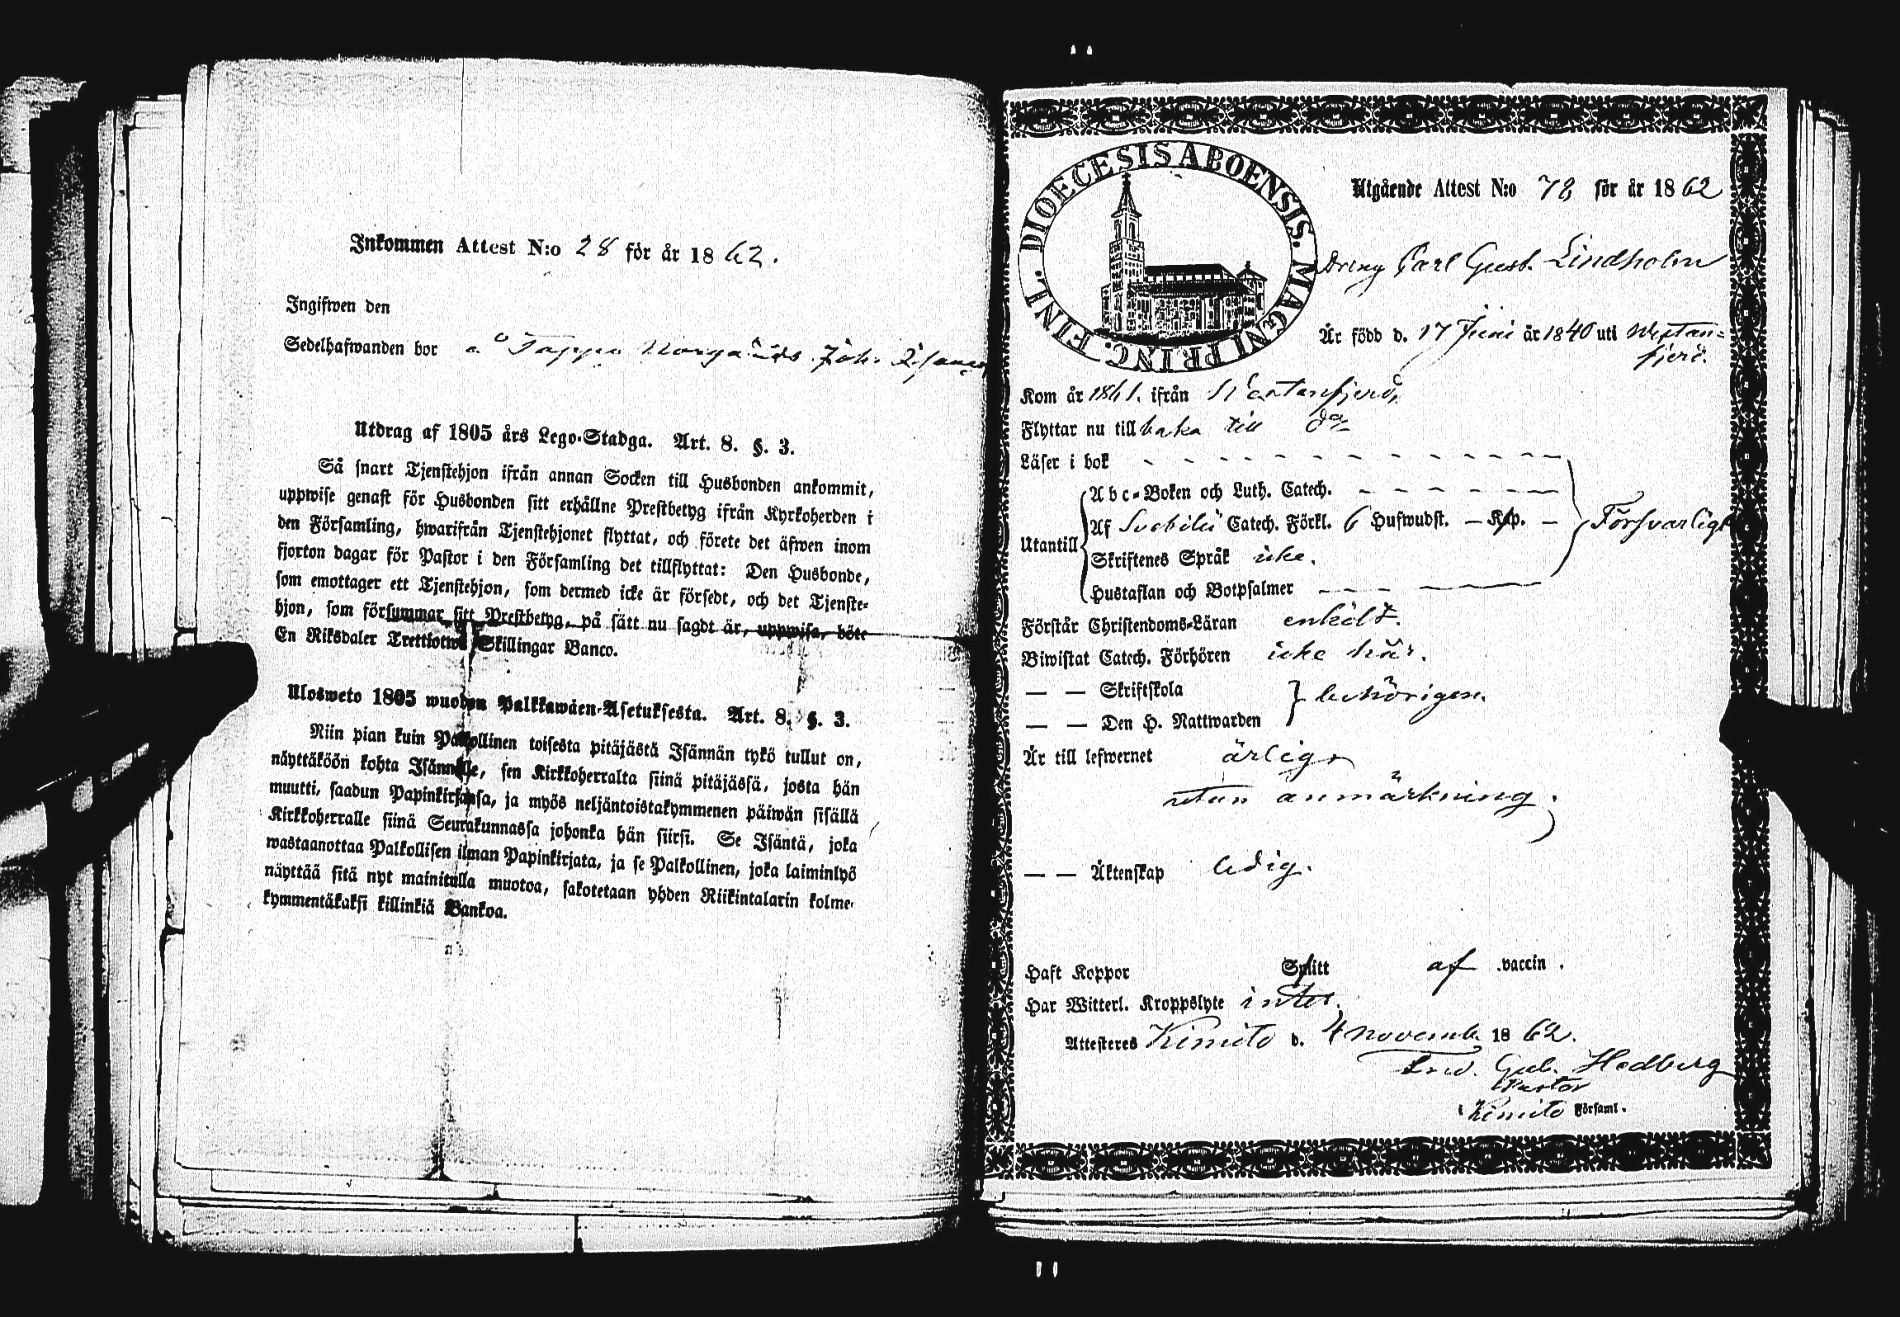 Inkommen Attest N:o 28 för år 1862.
Ingifwen den
Sedelhafwanden bor å Tappo Norgårds Joh.
Utdrag af 1805 års Lego-Stadga. Art. 8. §. 3.
Så snart Tjenstehjon ifrån annan Socken till Husbonden ankommit,
uppwise genast för Husbonden sitt erhållne Prestbetyg ifrån Kyrkoherden i
den Församling, hwarifrån Tjenstehjonet flyttat, och förete det äfwen inom
fjorton dagar för Pastor i den Församling det tillflyttat: Den Husbonde,
som emottager ett Tjenstehjon, som dermed icke är försedt, och det Tjenste-
hjon, som försummar sitt Prestbetyg, på sätt nu sagdt är, uppwisa, böte
En Riksdaler Trettiotwå Skillingar Banco.
Ulosweto 1805 wuoden Palkkawäen-Asetuksesta. Art. 8. §. 3.
Niin pian kuin Palkollinen toisesta pitäjästä Isännän tykö tullut on,
näyttäköön kohta Isännälle, sen Kirkkoherralta siinä pitäjässä, josta hän
muutti, saadun Papinkirjansa, ja myös neljäntoistakymmenen päiwän sisällä
Kirkkoherralle siinä Seurakunnassa johonka hän siirsi. Se Isäntä, joka
wastaanottaa Palkollisen ilman Papinkirjata, ja se Palkollinen, joka laiminlyö
näyttää sitä nyt mainitulla muotoa, sakotetaan yhden Riikintalarin kolme-
kymmentäkaksi killinkiä Bankoa.
DIOECESIS ABOENSIS. MAGNI PRINC. FINL.
Utgående Attest N:o 78 för år 1862
Dreng Carl Gust. Lindholm
Är född d. 17 Juni år 1840 uti Westan-
fjerd.
Kom år 1861. ifrån Westanfjerd,
Flyttar nu till baka till do
Läser i bok
Abc-Boken och Luth. Catech.
Utantill Af Svebilii Catech. Förkl. 6 Hufwudst. — Kap. — Försvarligt
Skriftenes Språk icke.
Hustaflan och Botpsalmer
Förstår Christendoms-Läran enkelt.
Biwistat Catech. Förhören icke här.
— — Skriftskola
behörigen.
— — Den H. Nattwarden
Är till lefwernet ärligt
utan anmärkning.
— — Äktenskap ledig.
Haft Koppor Smitt af vaccin.
Har Witterl. Kroppslyte intet.
Attesteras Kimito d. 4 novemb. 1862.
Fred. Gab. Hedberg
Pastor
i Kimito Församl.